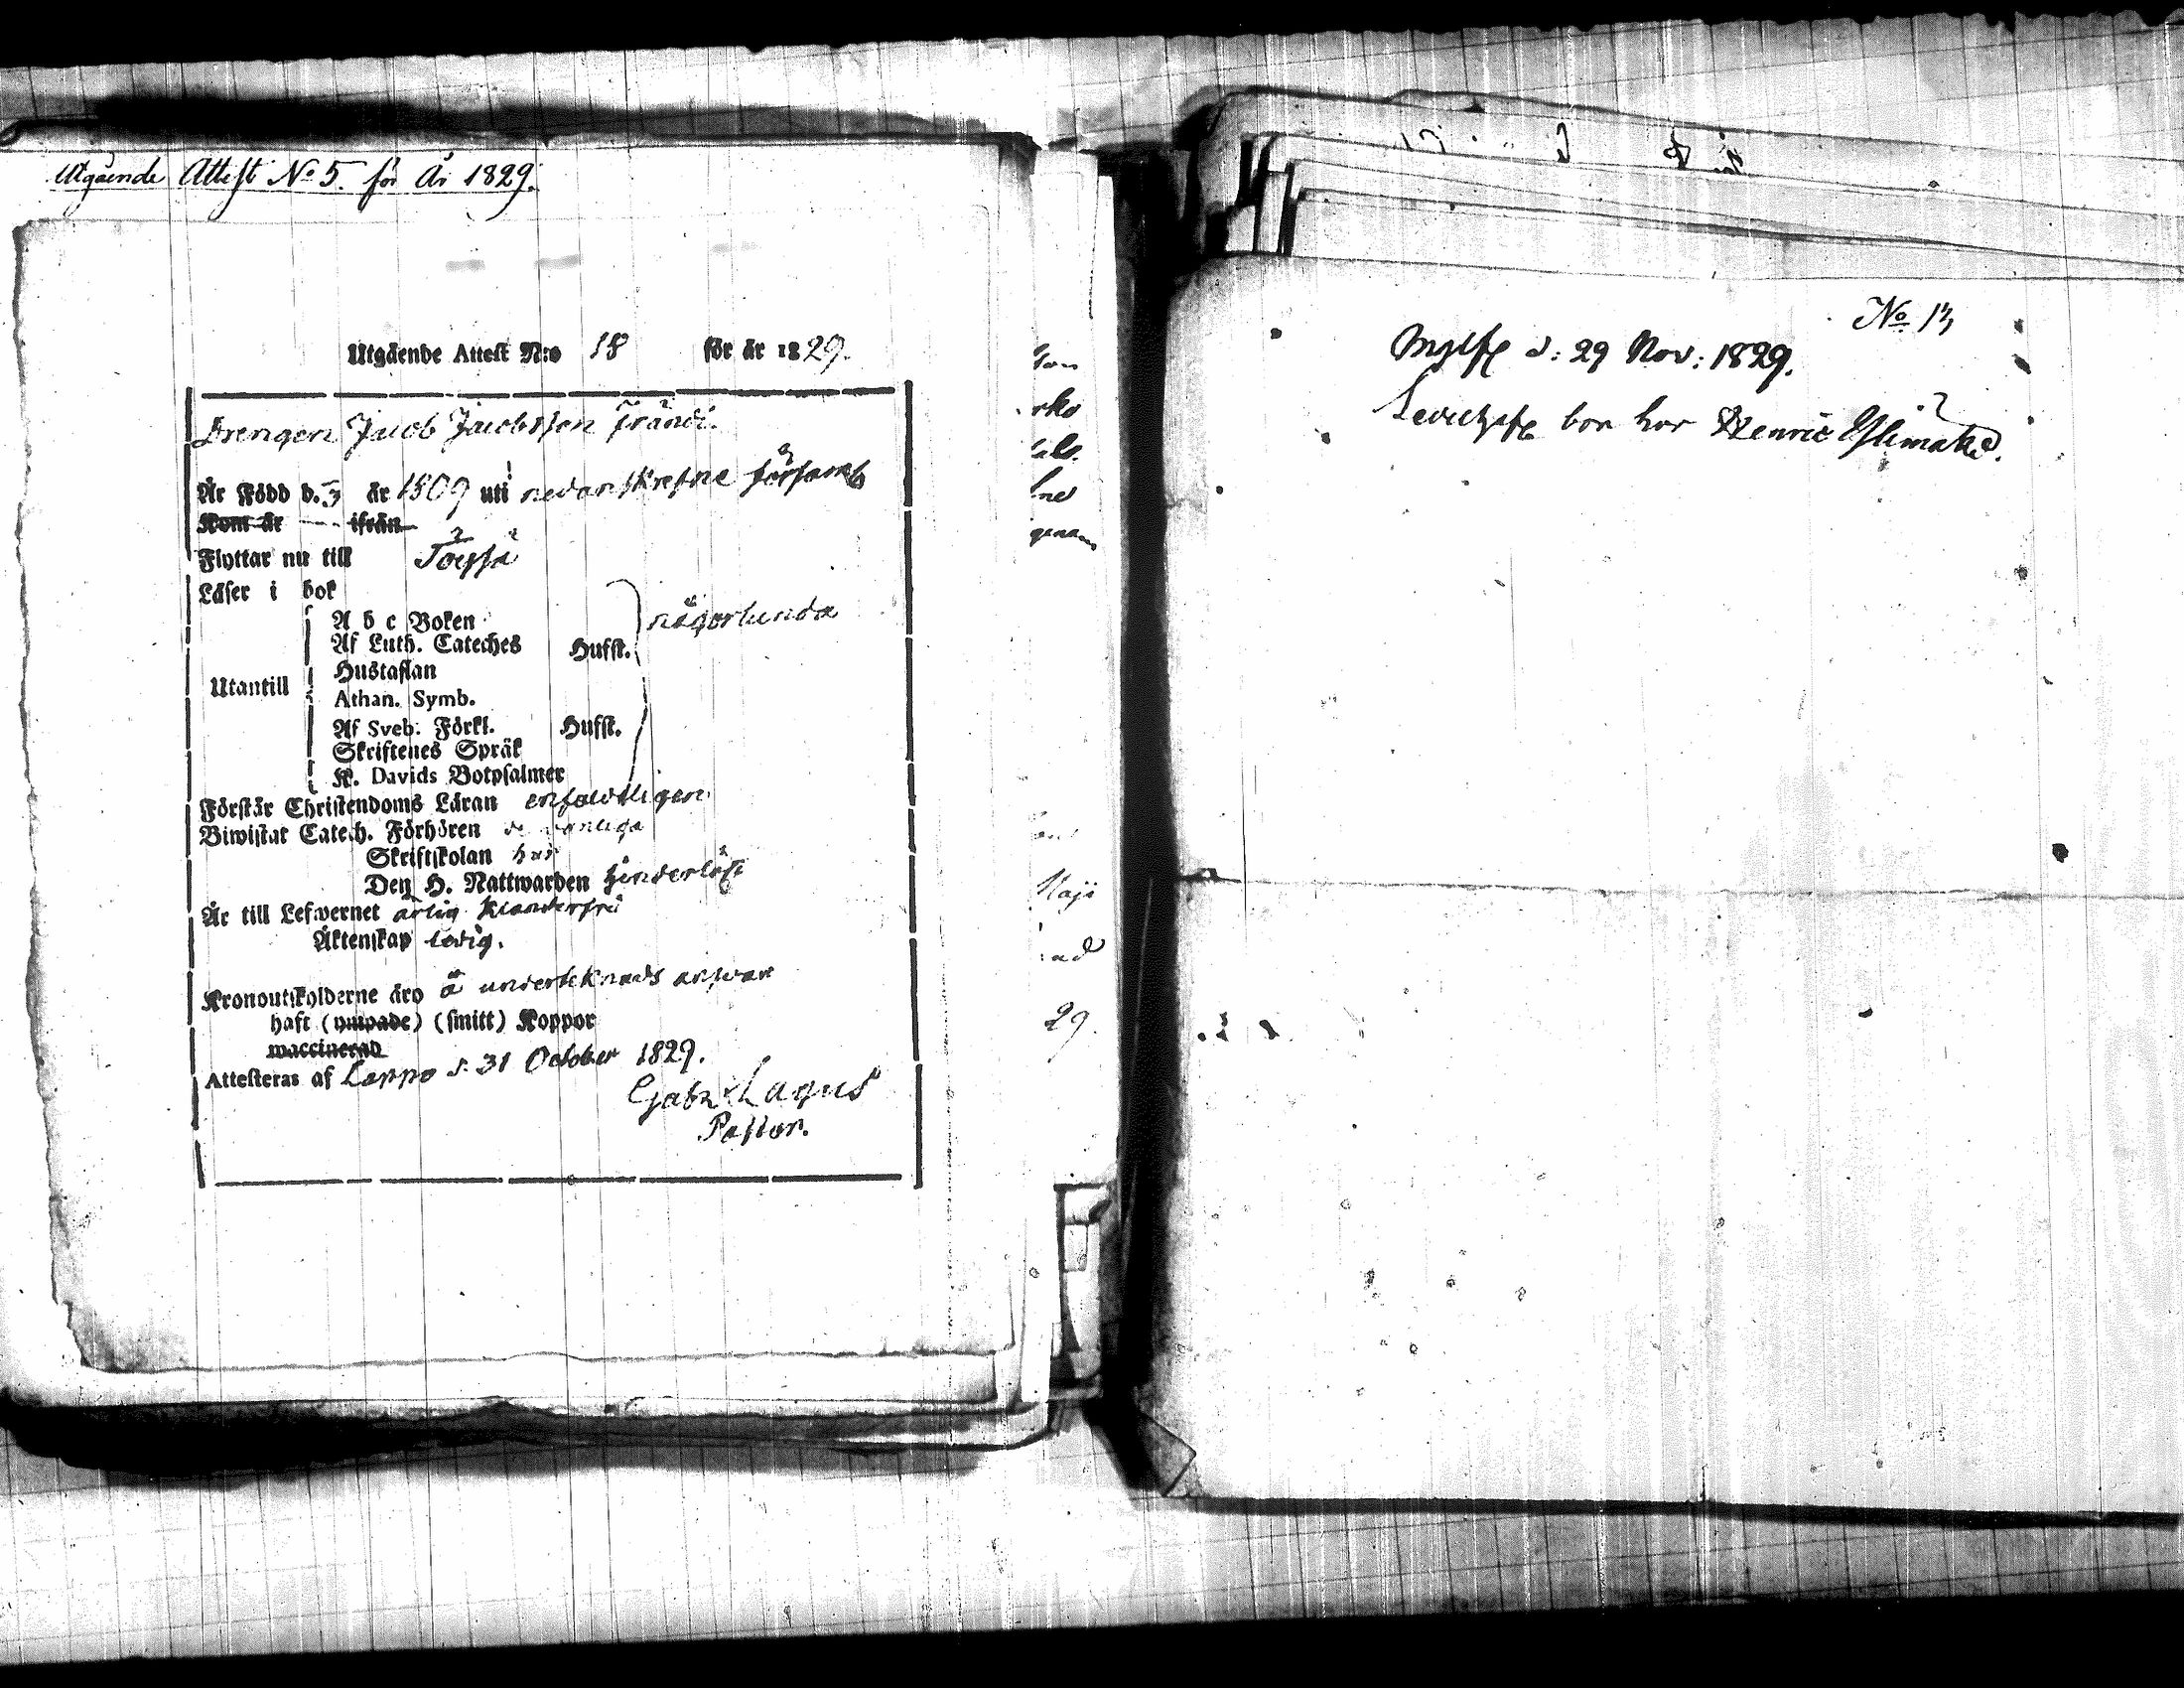 Utgående Attest No 5. för År 1829.
Utgående Attest N:o 18 för år 1829.
Drengen Jacob Jacobsson Trändi.
År Född d. 3 år 1809 uti nedanskrefne församl
Kom år ifrån
Flyttar nu till Töysä
Läser i bok
A b c Boken någorlunda
Af Luth. Cateches Hufst.
Hustaflan
Utantill
Athan. Symb.
Af Sveb. Förkl. Hufst.
Skriftenes Språk
K. Davids Botpsalmer
Förstår Christendoms Läran enfaldeligen
Biwistat Catech. Förhören de vanliga
Skriftskolan har
Den H. Nattwarden hinderlöst
År till Lefwernet ärlig klanderfri
Äktenskap ledig.
Kronoutskylderne äro å undertecknads answar
haft (ympade) (smitt) Koppor
waccinerad
Attesteras af Lappo d. 31 October 1829.
Gabr. Lagus
Pastor.
29.
No 13
d: 29 Nov: 1829.
bor hos Henric